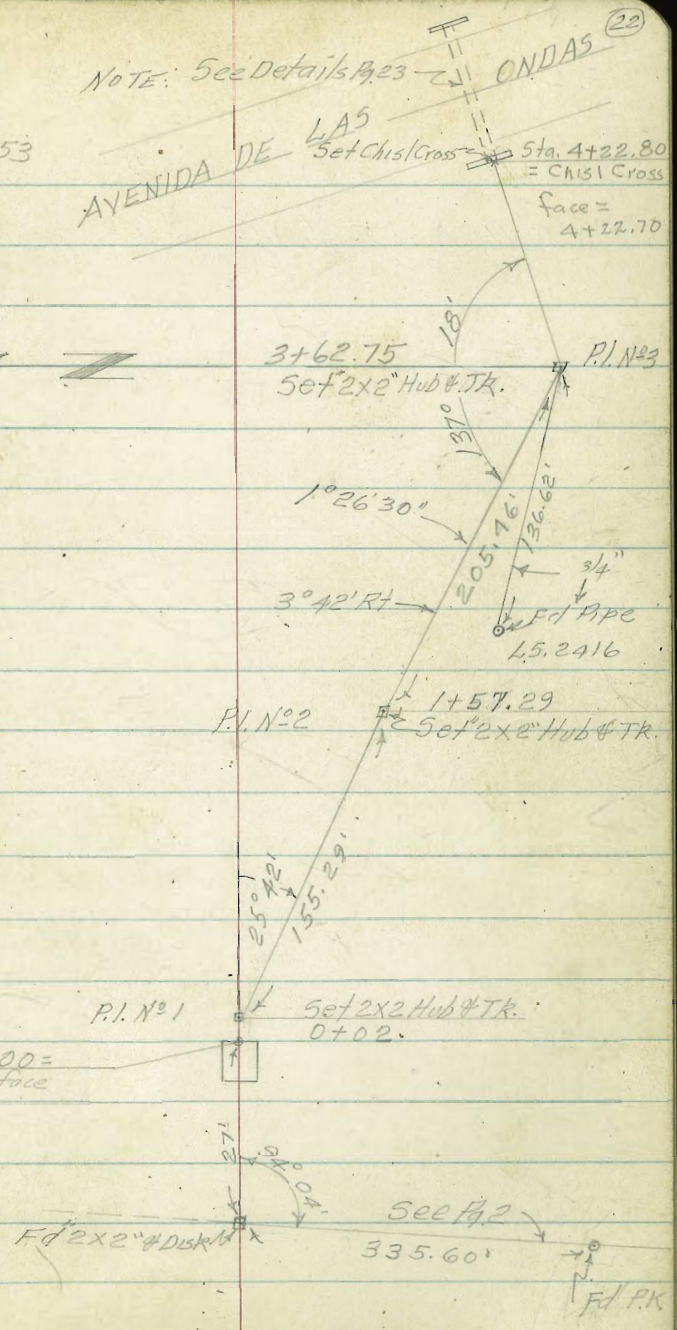 22
NOTE: See Details Pg. 23
AVENIDA DE LAS ONDAS
53
Set Chisl Cross
Sta. 4+22.80
= Chisl Cross
face =
4+22.70
18'
137°
3+62.75
Set 2"x2" Hub & Tk.
P.I. Nº3
1°26'30"
205.46'
136.62'
3°42' Rt
3/4"
Fd Pipe
L.S. 2416
P.I. Nº2
1+57.29
Set 2"x2" Hub & Tk.
25°42'
155.29'
P.I. Nº1
Set 2x2 Hub & Tk.
0+02.
00=
face
27'
94°04'
See Pg. 2
Fd 2"x2" & Disk
335.60'
Fd P.K